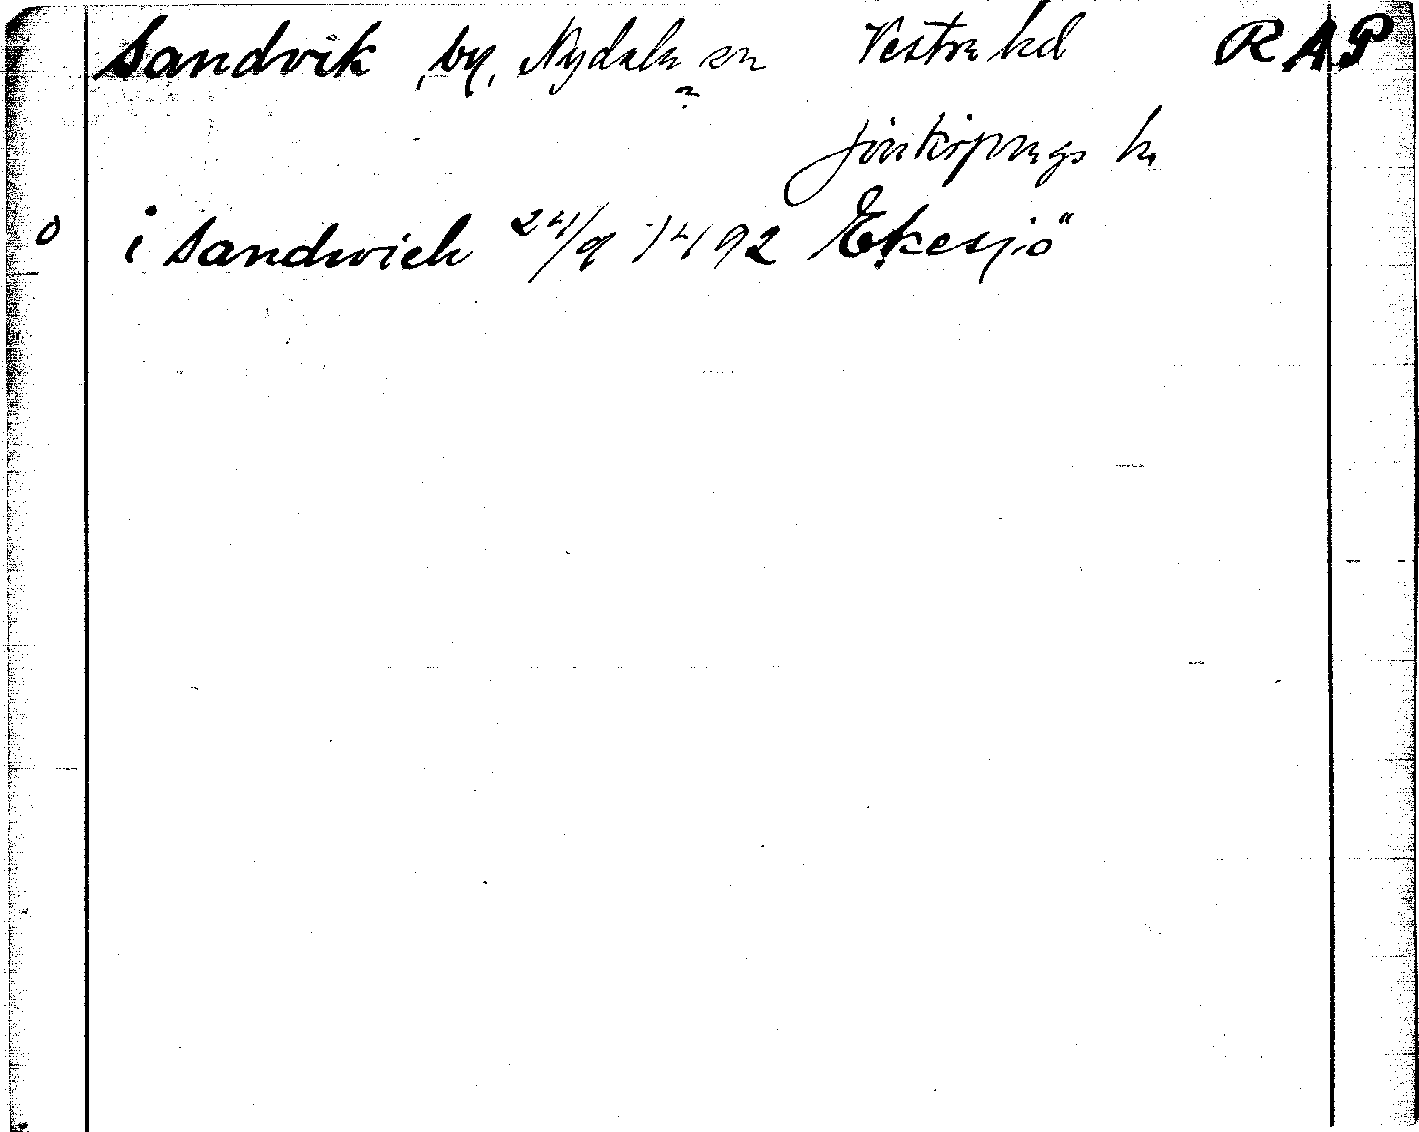 Sandvik by, Nydala sn Vestra hd RAP
Jönköpings ln
o i Sandwich 24/9 1492 Ekesjö